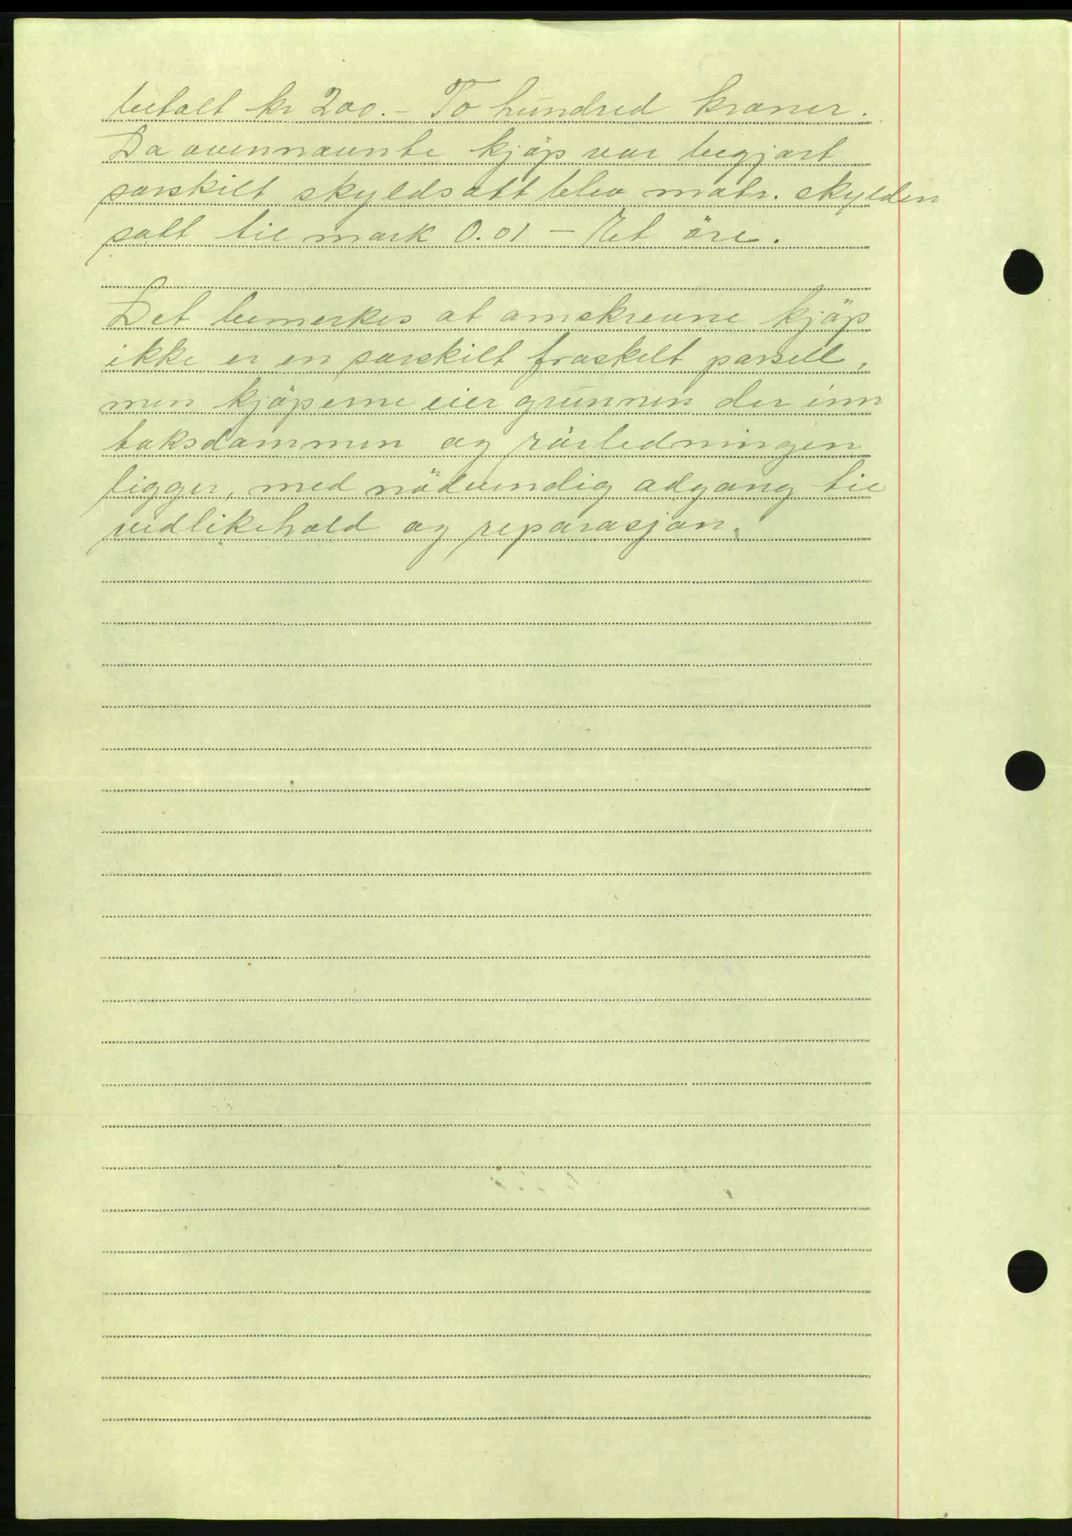 betalt kr 200.- To hundred kroner.
Da ovennævnte kjöp var begjært
særskilt skyldsatt blev matr. skylden
satt til mark 0.01 - Et öre.
Det bemerkes at omskrevne kjöp
ikke er en særskilt fraskilt parsell,
men kjöperne eier grunnen der inn
taksdammen og rörledningen
ligger, med nödvendig adgang til
vedlikehold og reparasjon.